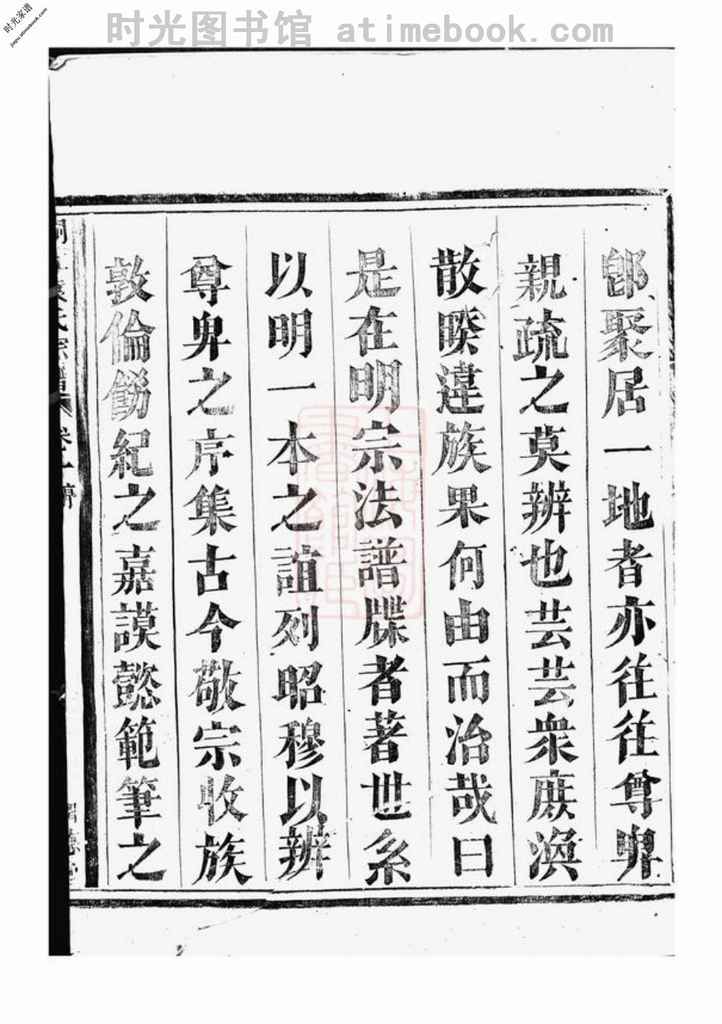 时光家谱
jiapu.atimebook.com
时光图书馆 atimebook.com
郎聚居一地者亦往往尊卑
親疏之莫辨也芸芸衆庶渙
散暌違族果何由而治哉曰
是在明宗法譜牒者著世系
以明一本之誼列昭穆以辨
尊卑之序集古今敬宗收族
敦倫飭紀之嘉謨懿範筆之
袁氏宗譜 卷上